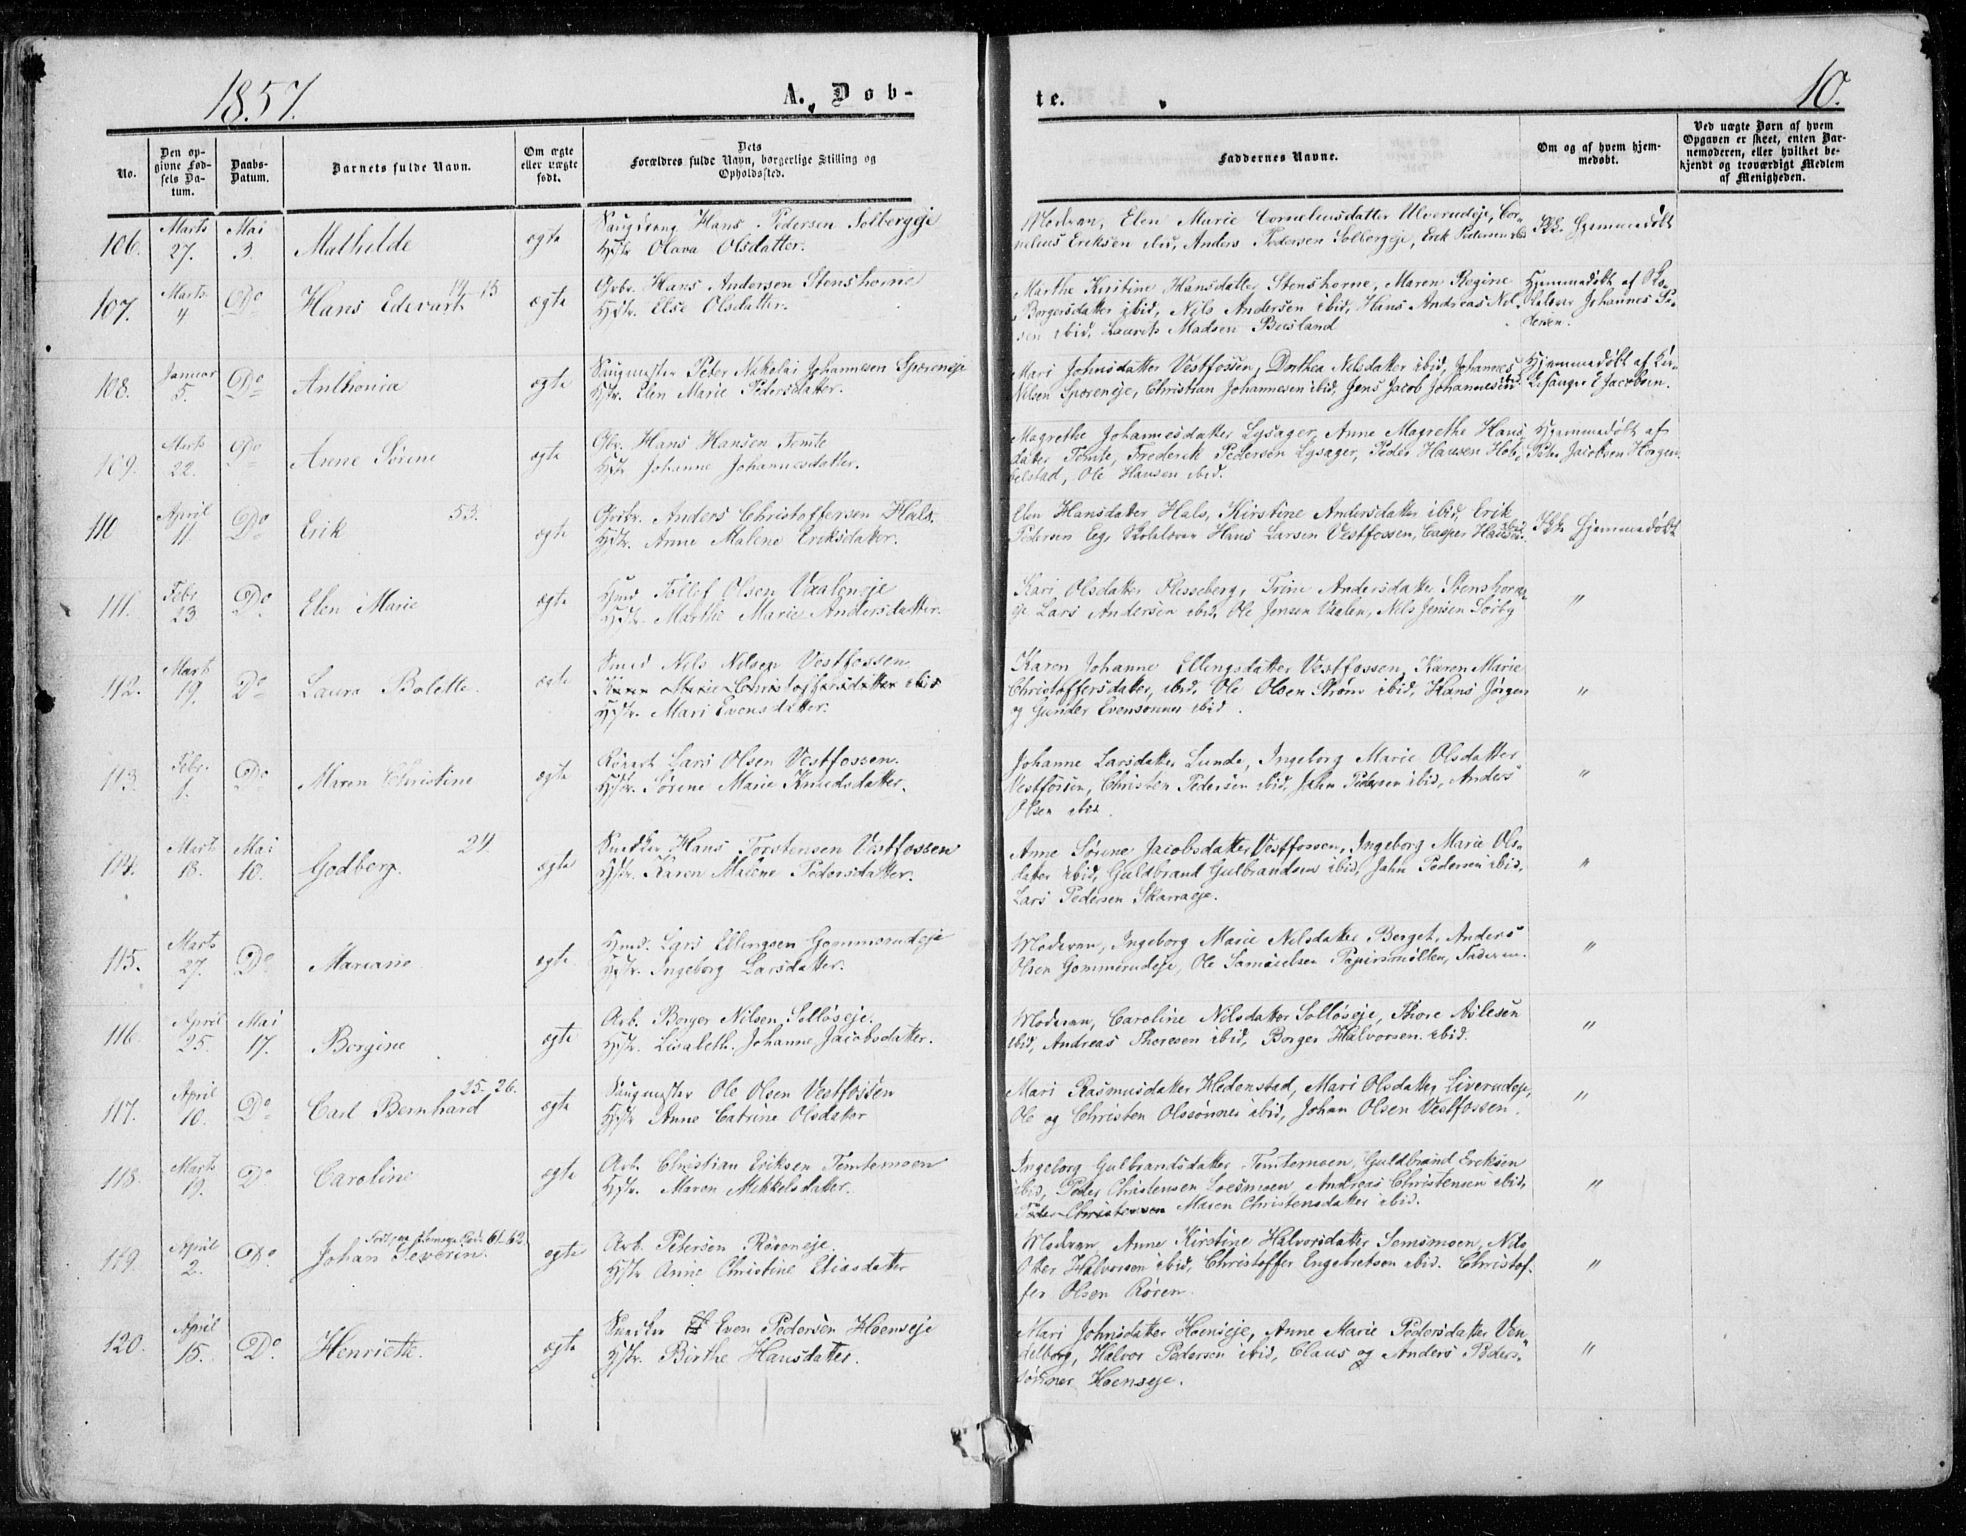 1857.
A. Døb-
te.
10.
No.
Den op-
givne Fød-
sels Da-
tum.
Daabs-
Datum.
Barnets fulde Navn.
Om ægte
eller uægte
født.
Dets
Forældres fulde Navn, borgerlige Stilling og
Opholdssted.
Faddernes Navne.
Om og af hvem hjem-
medøbt.
Ved uægte Børn af hvem
Opgaven er skeet, enten Bar-
nemoderen, eller hvilket be-
kjendt og troværdigt Medlem
af Menigheden.
106. Marts 27. Mai 3. Mathilde ægte
Saugdreng Hans Pedersen Solbergeje
Hstr Olava Olsdatter.
Moderen, Elen Marie Corneliusdatter Ulverudeje, Cor-
nelius Eriksen ibid, Anders Pedersen Solbergeje, Erik Pedersen ibid
Ikk. Hjemmedøbt
107. Marts 4 Do Hans Edevart 12-13 ægte
Gbr. Hans Andersen Stenshorne
Hstr. Else Olsdatter.
Marthe Kirstine Hansdatter Stenshorne, Maren Regine
Borgersdatter ibid, Nils Andersen ibid, Hans Andreas Nil-
sen ibid, Laurits Madsen Busland
Hjemmedøbt af Sko-
lelærer Johannes Pe-
dersen.
108. Januar 5. Do Anthonia ægte
Saugmester Peter Nikolai Johannesen Sporeneje
Hstr. Elen Marie Pedersdatter.
Mari Johnsdatter Vestfossen, Dorthea Nilsdatter ibid, Johannes
Nilsen Sporeneje, Christian Johannesen ibid, Jens Jacob Johannesen ibid
Hjemmedøbt af Kir-
kesanger E Jacobsen.
109. Marts 22. Do Anne Sørine ægte
Gbr. Hans Hansen Tomte
Hstr Johanne Johannesdatter.
Magrethe Johannesdatter Lysager, Anne Magrethe Hans
datter Tomte, Frederik Pedersen Lysager, Peder Hansen Hob-
belstad, Ole Hansen ibid.
Hjemmedøbt af
Peter Jacobsen Horgen.
110 April 11. Do Erik 53. ægte
Gbr. Anders Christoffersen Hals.
Hstr. Anne Malene Eriksdatter.
Elen Hansdatter Hals, Kirstine Andersdatter ibid, Erik
Pedersen Eeg, Skolelærer Hans Larsen Vestfossen, Casper Hansen ibid
Ikk. Hjemmedøbt
111. Febr 23 Do Elen Marie ægte
Hmd Tollef Olsen Vxaleneje
Hstr. Marthe Marie Andersdatter.
Kari Olsdatter Flesseberg, Trine Andersdatter Stenshorn-
eje Lars Andersen ibid, Ole Jensen Vaalen, Nils Jensen Sørby
"
112. Marts 19. Do Laura Bolette. ægte
Smed Nils Nilsen Vestfossen
Karen Marie Christoffersdatter ibid
Hstr. Mari Evensdatter.
Karen Johanne Ellingsdatter Vestfossen, Karen Marie
Christoffersdatter, ibid, Ole Olsen Strøm ibid, Hans Jørgen
og Gunder Evensønner ibid.
"
113. Febr. 1. Do Maren Christine ægte
Lars Olsen Vestfossen.
Hstr. Sørene Marie Knudsdatter.
Johanne Larsdatter Lunde, Ingeborg Marie Olsdatter
Vestfossen, Christen Pedersen ibid, John Pedersen ibid, Anders
Olsen ibid.
"
114. Marts 18. Mai 10. Godberg. 24. ægte
Snedker Hans Torstensen Vestfossen
Hstr. Karen Malene Pedersdatter.
Anne Sørine Jacobsdatter Vestfossen, Ingeborg Marie Ols-
datter ibid, Guldbrand Gulbrandsen ibid, John Pedersen ibid,
Lars Pedersen Skarraeje.
"
115. Marts 27. Do Mariane ægte
Hmd. Lars Ellingsen Gommerudeje
Hstr. Ingeborg Larsdatter.
Moderen, Ingeborg Marie Nilsdatter Berget, Anders
Olsen Gommerudeje, Ole Samuelsen Papirmøllen, Faderen.
"
116. April 25. Mai 17. Borgine ægte
Arb. Borger Nilsen Solløseje.
Hstr. Lisabeth Johanne Jacobsdatter.
Moderen, Caroline Nilsdatter Solløseje, Thore Aslesen
ibid, Andreas Thoresen ibid, Borger Halvorsen ibid.
"
117. April 10. Do Carl Bernhard 25-26. ægte
Saugmester Ole Olsen Vestfossen
Hstr Anne Catrine Olsdatter
Mari Rasmusdatter Hedenstad, Mari Olsdatter Liverudeje,
Ole og Christen Olssønner ibid, Johan Olsen Vestfossen.
"
118. Marts 19. Do Caroline ægte
Arb. Christian Eriksen Temtemoen
Hstr. Maren Mikkelsdatter.
Ingeborg Gulbrandsdatter Temtemoen, Guldbrand Eriksen
ibid, Peder Christensen Loesmoen, Andreas Christensen ibid,
Peder Christensen Maren Christensdatter ibid.
"
119. April 2. Do Johan Severin. 61-62. ægte
Arb. Petersen Røreneje
Hstr Anne Christine Eliasdatter
Moderen Anne Kirstine Halvorsdatter Semsmoen, Nils
Halvorsen ibid, Christoffer Engebretsen ibid. Christof-
fer Olsen Røren.
"
120. April 15. Do Henriette. ægte
Snedker Even Pedersen Hoenseje
Hstr. Birthe Hansdatter.
Mari Johnsdatter Hoenseje, Anne Marie Pedersdatter Ven-
delborg, Halvor Pedersen ibid, Claus og Anders Peders-
sønner Hoenseje.
"